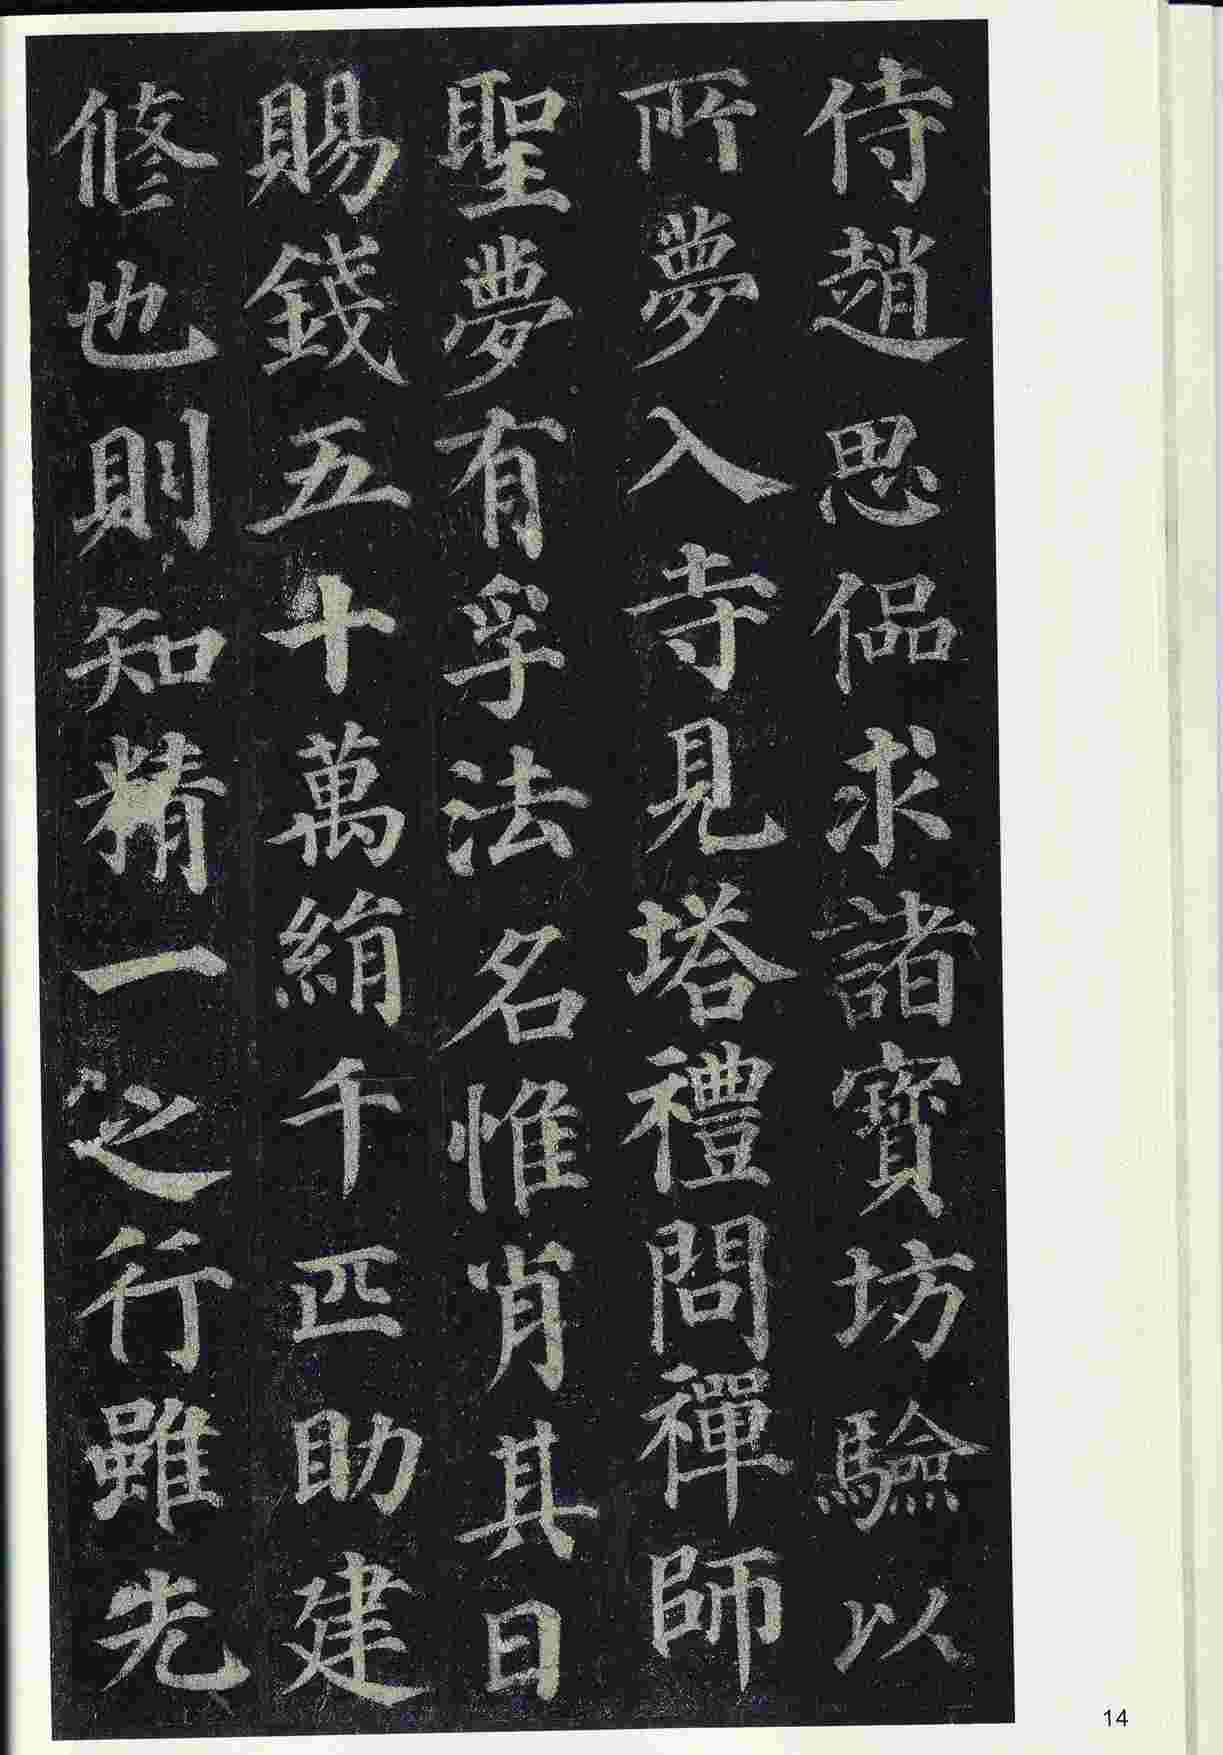 侍趙思侽求諸寶坊驗以
所夢入寺見塔禮問禪師
聖夢有孚法名惟肖其日
賜錢五十萬絹千匹助建
修也則知精一之行雖先
14